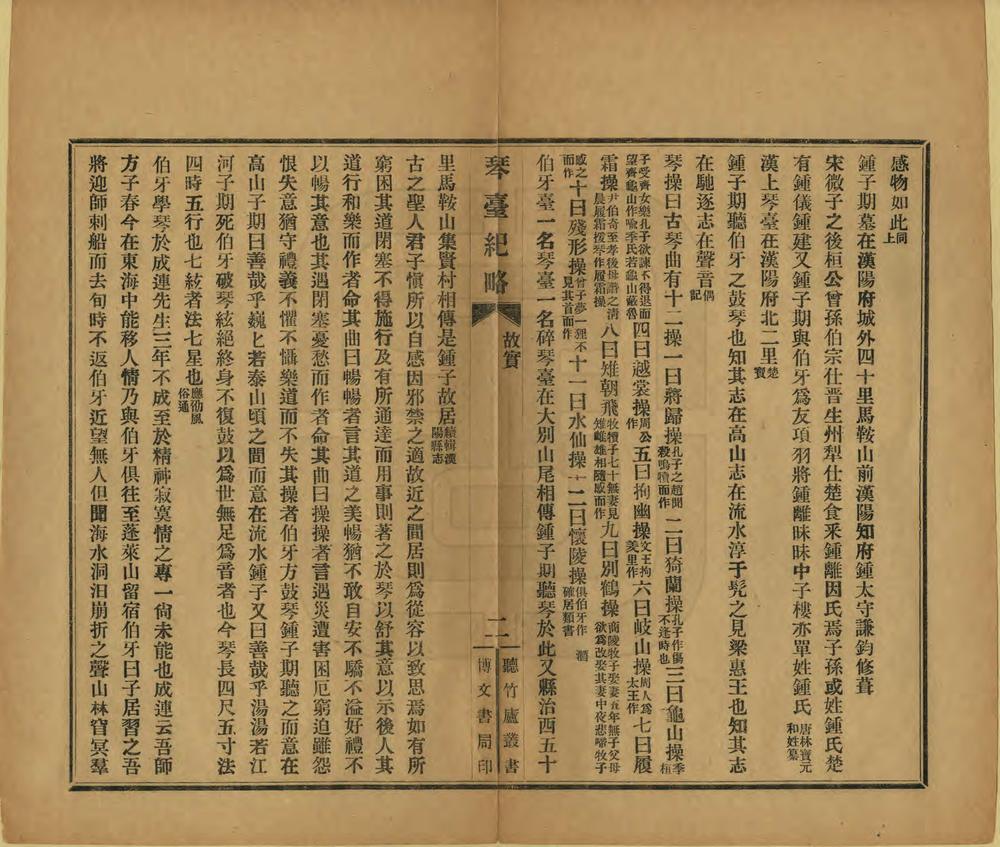 感物如此同上
鍾子期墓在漢陽府城外四十里馬鞍山前漢陽知府鍾太守謙鈞修葺
宋微子之後桓公曾孫伯宗仕晋生州犁仕楚食釆鍾離因氏焉子孫或姓鍾氏楚
有鍾儀鍾建又鍾子期與伯牙爲友項羽將鍾離昧昧中子樓亦單姓鍾氏唐林寶元和姓纂
漢上琴臺在漢陽府北二里楚寶
鍾子期聽伯牙之鼓琴也知其志在高山志在流水淳于髠之見梁惠王也知其志
在馳逐志在聲音偶記
琴操曰古琴曲有十二操一曰將歸操孔子之趙聞殺鳴犢而作二曰猗蘭操孔子作傷不逢時也三曰龜山操季桓
子受齊女樂孔子欲諫不得退而望齊龜山作喩季氏若龜山蔽魯四曰越裳操周公作五曰拘幽操文王拘羑里作六曰岐山操周人爲太王作七曰履
霜操尹伯奇至孝後母譖之清晨履霜援琴作履霜操八曰雉朝飛牧犢子七十無妻見雉雌雄相隨感而作九曰別鶴操商陵牧子娶妻五年無子父母欲爲改娶其妻中夜悲嘯牧子
感之而作十曰殘形操曾子夢一狸不見其首而作十一曰水仙操十二曰懷陵操俱伯牙作確居類書
伯牙臺一名琴臺一名碎琴臺在大別山尾相傳鍾子期聽琴於此又縣治西五十
琴臺紀略
故實
二
聽竹廬叢書
博文書局印
里馬鞍山集賢村相傳是鍾子故居續輯漢陽縣志
古之聖人君子愼所以自感因邪禁之適故近之間居則爲從容以致思焉如有所
窮困其道閉塞不得施行及有所通達而用事則著之於琴以舒其意以示後人其
道行和樂而作者命其曲曰暢暢者言其道之美暢猶不敢自安不驕不溢好禮不
以暢其意也其遇閉塞憂愁而作者命其曲曰操操者言遇災遭害困厄窮迫雖怨
恨失意猶守禮義不懼不懾樂道而不失其操者伯牙方鼓琴鍾子期聽之而意在
高山子期曰善哉乎巍巍若泰山頃之間而意在流水鍾子又曰善哉乎湯湯若江
河子期死伯牙破琴絃絕終身不復鼓以爲世無足爲音者也今琴長四尺五寸法
四時五行也七絃者法七星也應劭風俗通
伯牙學琴於成連先生三年不成至於精神寂寞情之專一尙未能也成連云吾師
方子春今在東海中能移人情乃與伯牙俱往至蓬萊山留宿伯牙曰子居習之吾
將迎師剌船而去旬時不返伯牙近望無人但聞海水洞汨崩折之聲山林窅冥羣